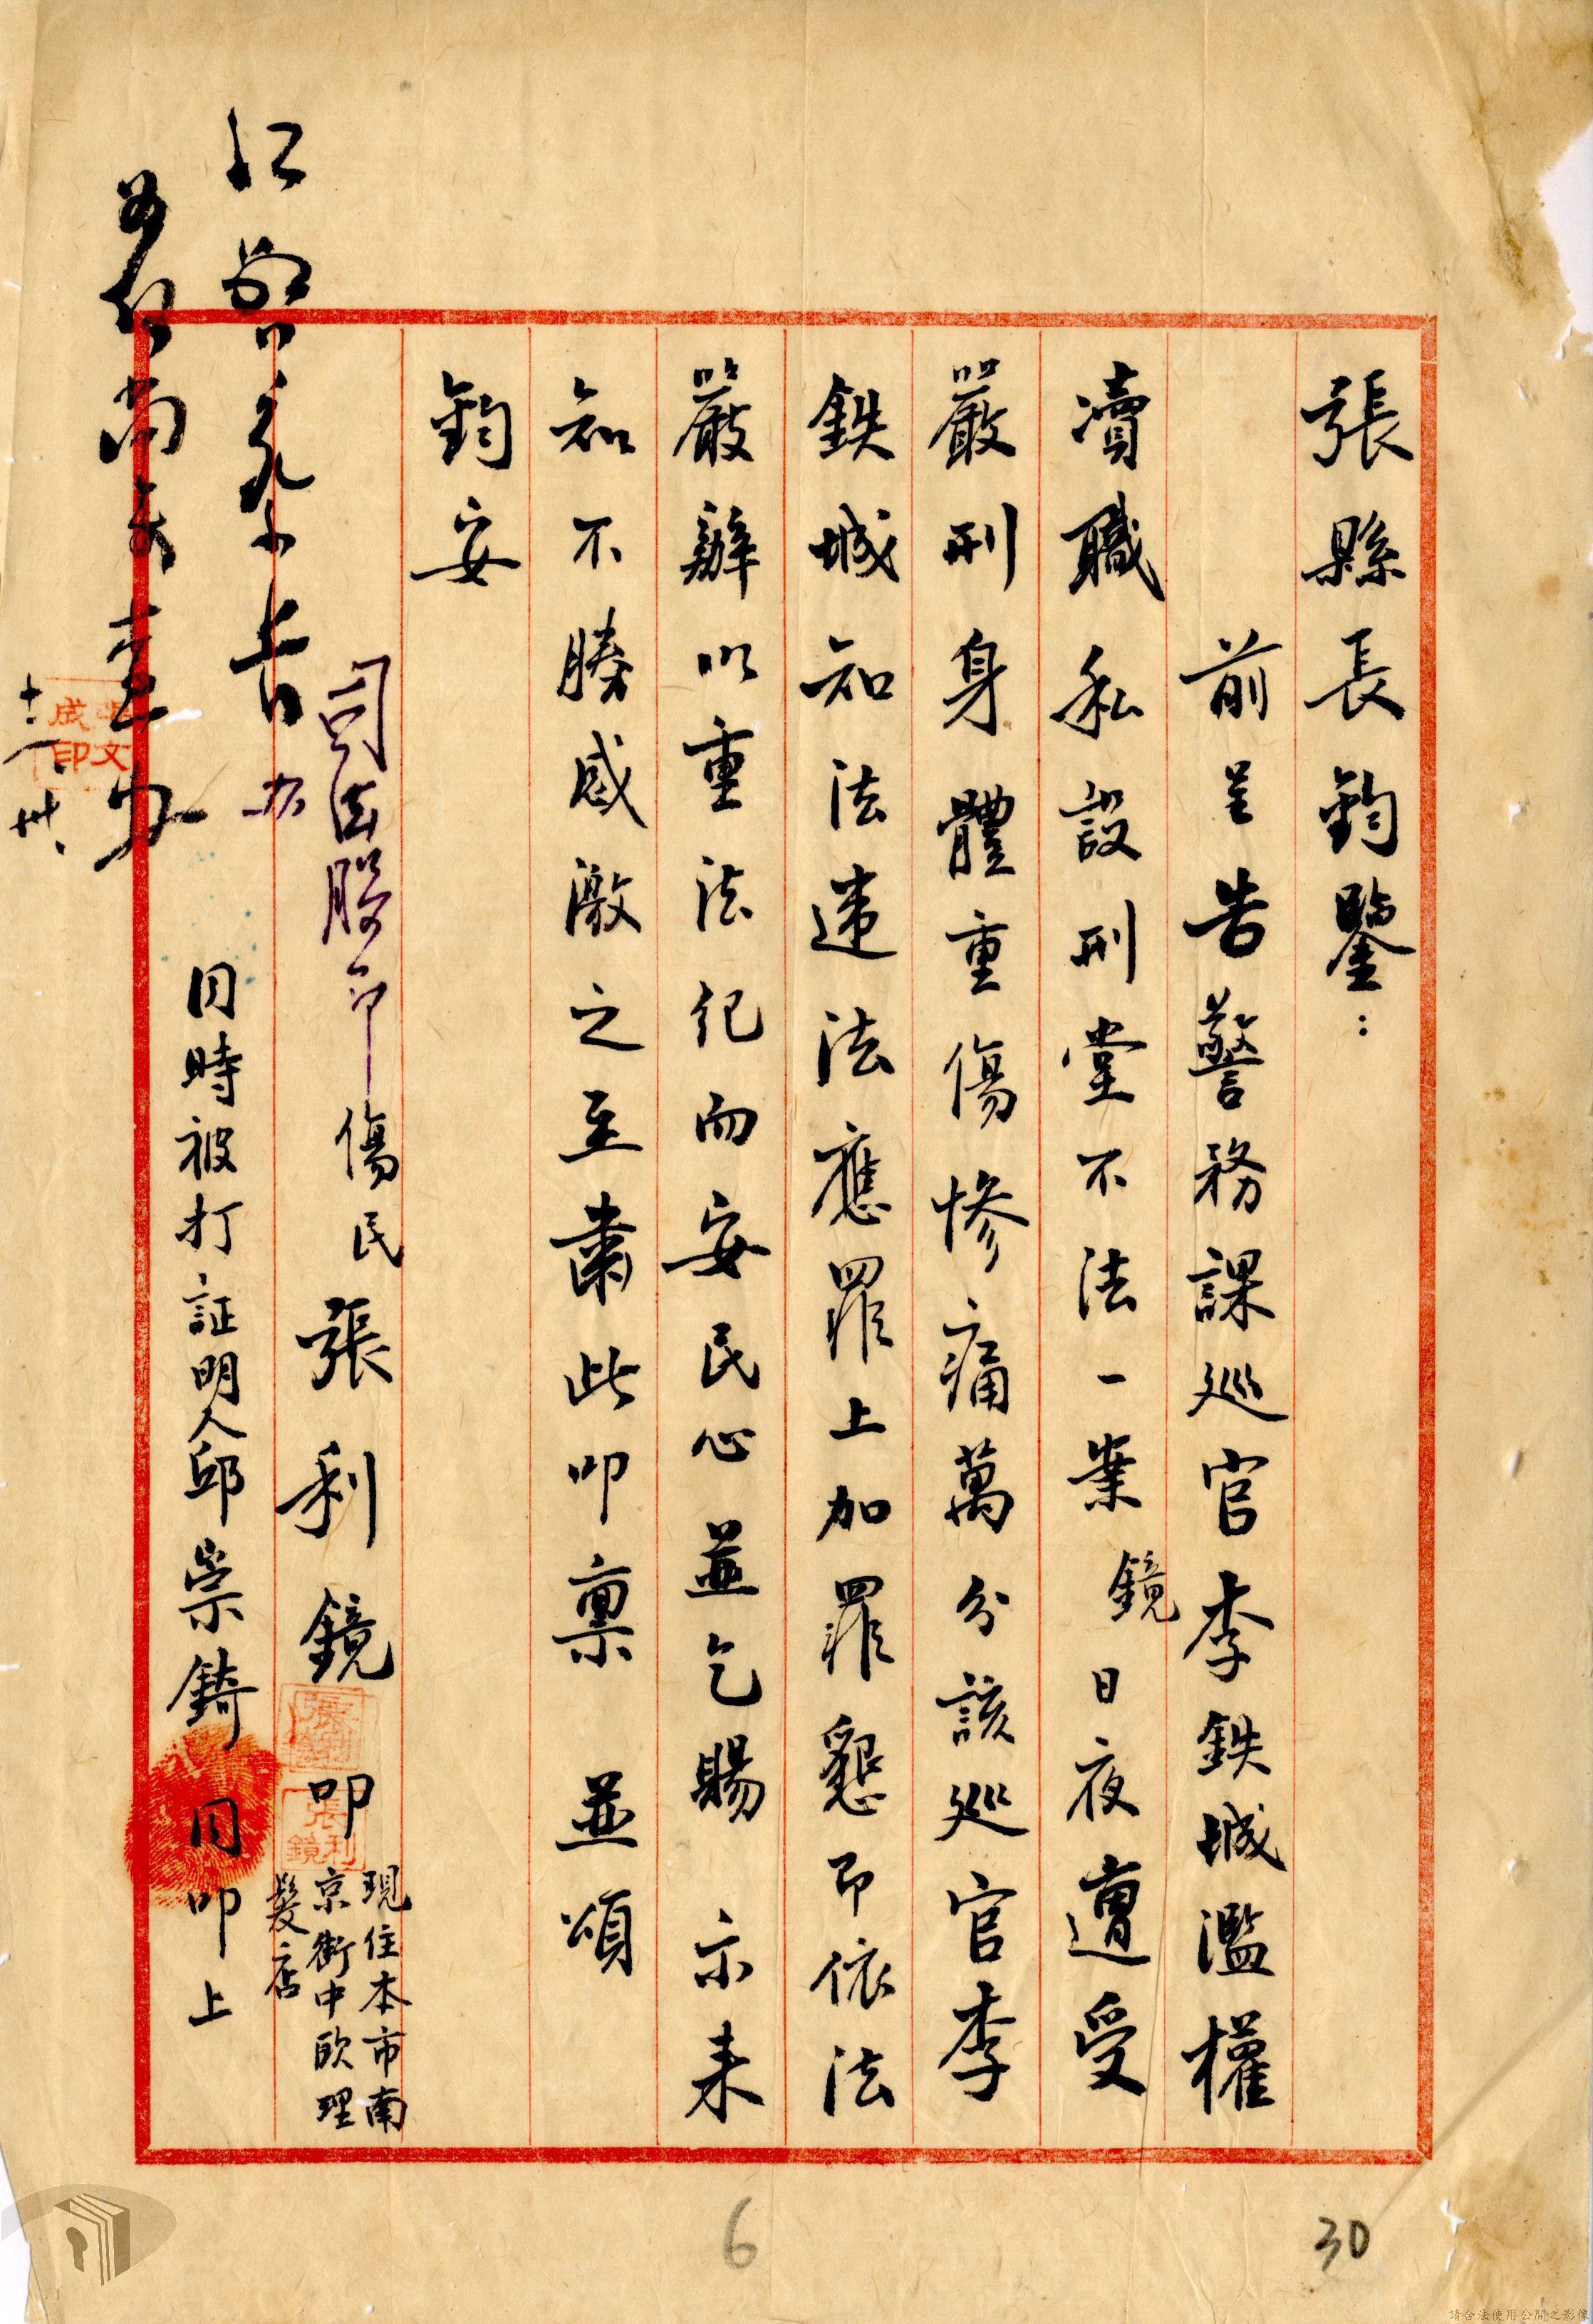 張縣長鈞鑒：
前呈告警務課巡官李鉄城濫權
瀆職私設刑堂不法一案鏡日夜遭受
嚴刑身體重傷慘痛萬分該巡官李
鉄城知法違法應罪上加罪懇即依法
嚴辦以重法紀而安民心並乞賜示未
知不勝感激之至肅此叩稟 並頌
鈞安
司法股
傷民張利鏡叩
現住本市南
京街中欧理
髮店
同時被打証明人邱崇錡同叩上
張利鏡
十二、卅、
文成印
30
6
請合法使用公開之影像